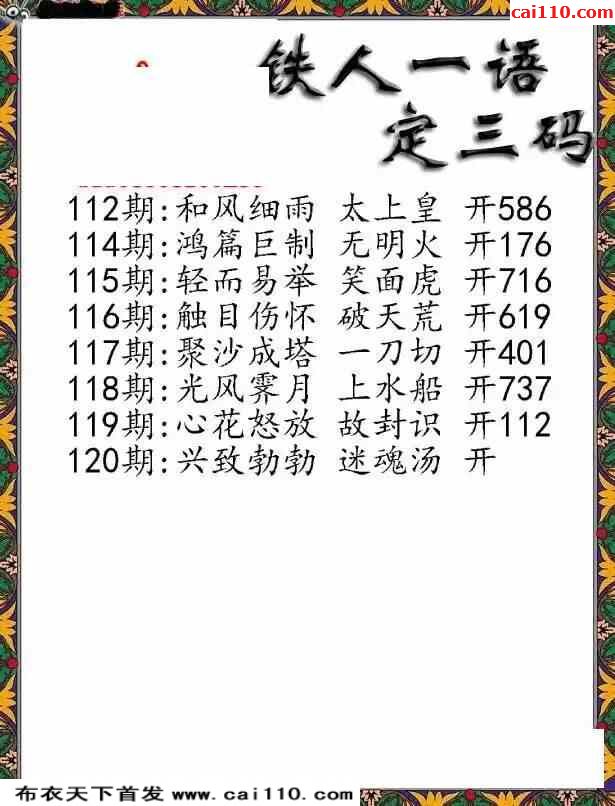 cai110.com
铁人一语
定三码
112期:和风细雨 太上皇 开586
114期:鸿篇巨制 无明火 开176
115期:轻而易举 笑面虎 开716
116期:触目伤怀 破天荒 开619
117期:聚沙成塔 一刀切 开401
118期:光风霁月 上水船 开737
119期:心花怒放 故封识 开112
120期:兴致勃勃 迷魂汤 开
布衣天下首发 www.cai110.com